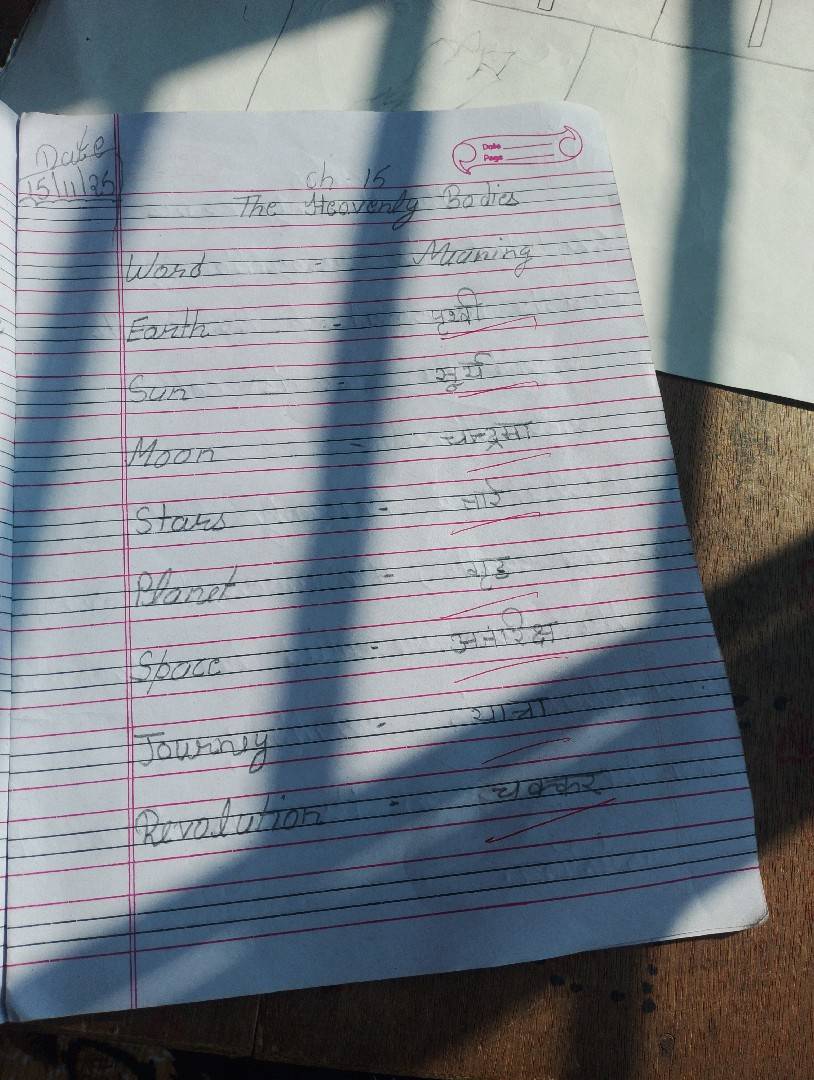 Date
15/11/25
Date
Page
ch - 15
The Heavenly Bodies
Word - Meaning
Earth - पृथ्वी
Sun - सूर्य
Moon - चन्द्रमा
Stars - तारे
Planet - ग्रह
Space - अन्तरिक्ष
Journey - यात्रा
Revolution - चक्कर